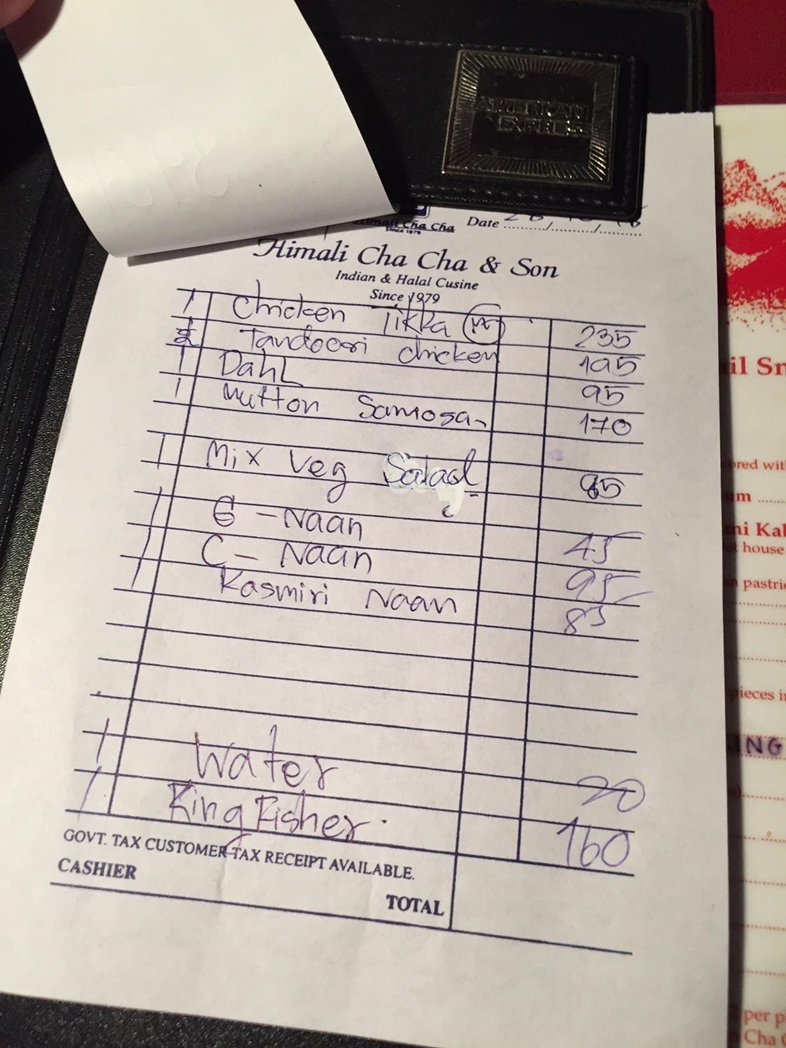 AMERICAN EXPRESS
Himali Cha Cha
Since 1979
Date ....../....../......
Himali Cha Cha & Son
Indian & Halal Cusine
Since 1979
1 Chicken Tikka 235
Tandoori chicken 195
1 Dahl 95
1 Mutton Samosa 170
1 Mix Veg Salad 85
1 G - Naan 45
1 C - Naan 95
1 Kasmiri Naan 85
1 Water 20
1 King Fisher 160
GOVT. TAX CUSTOMER TAX RECEIPT AVAILABLE.
CASHIER
TOTAL